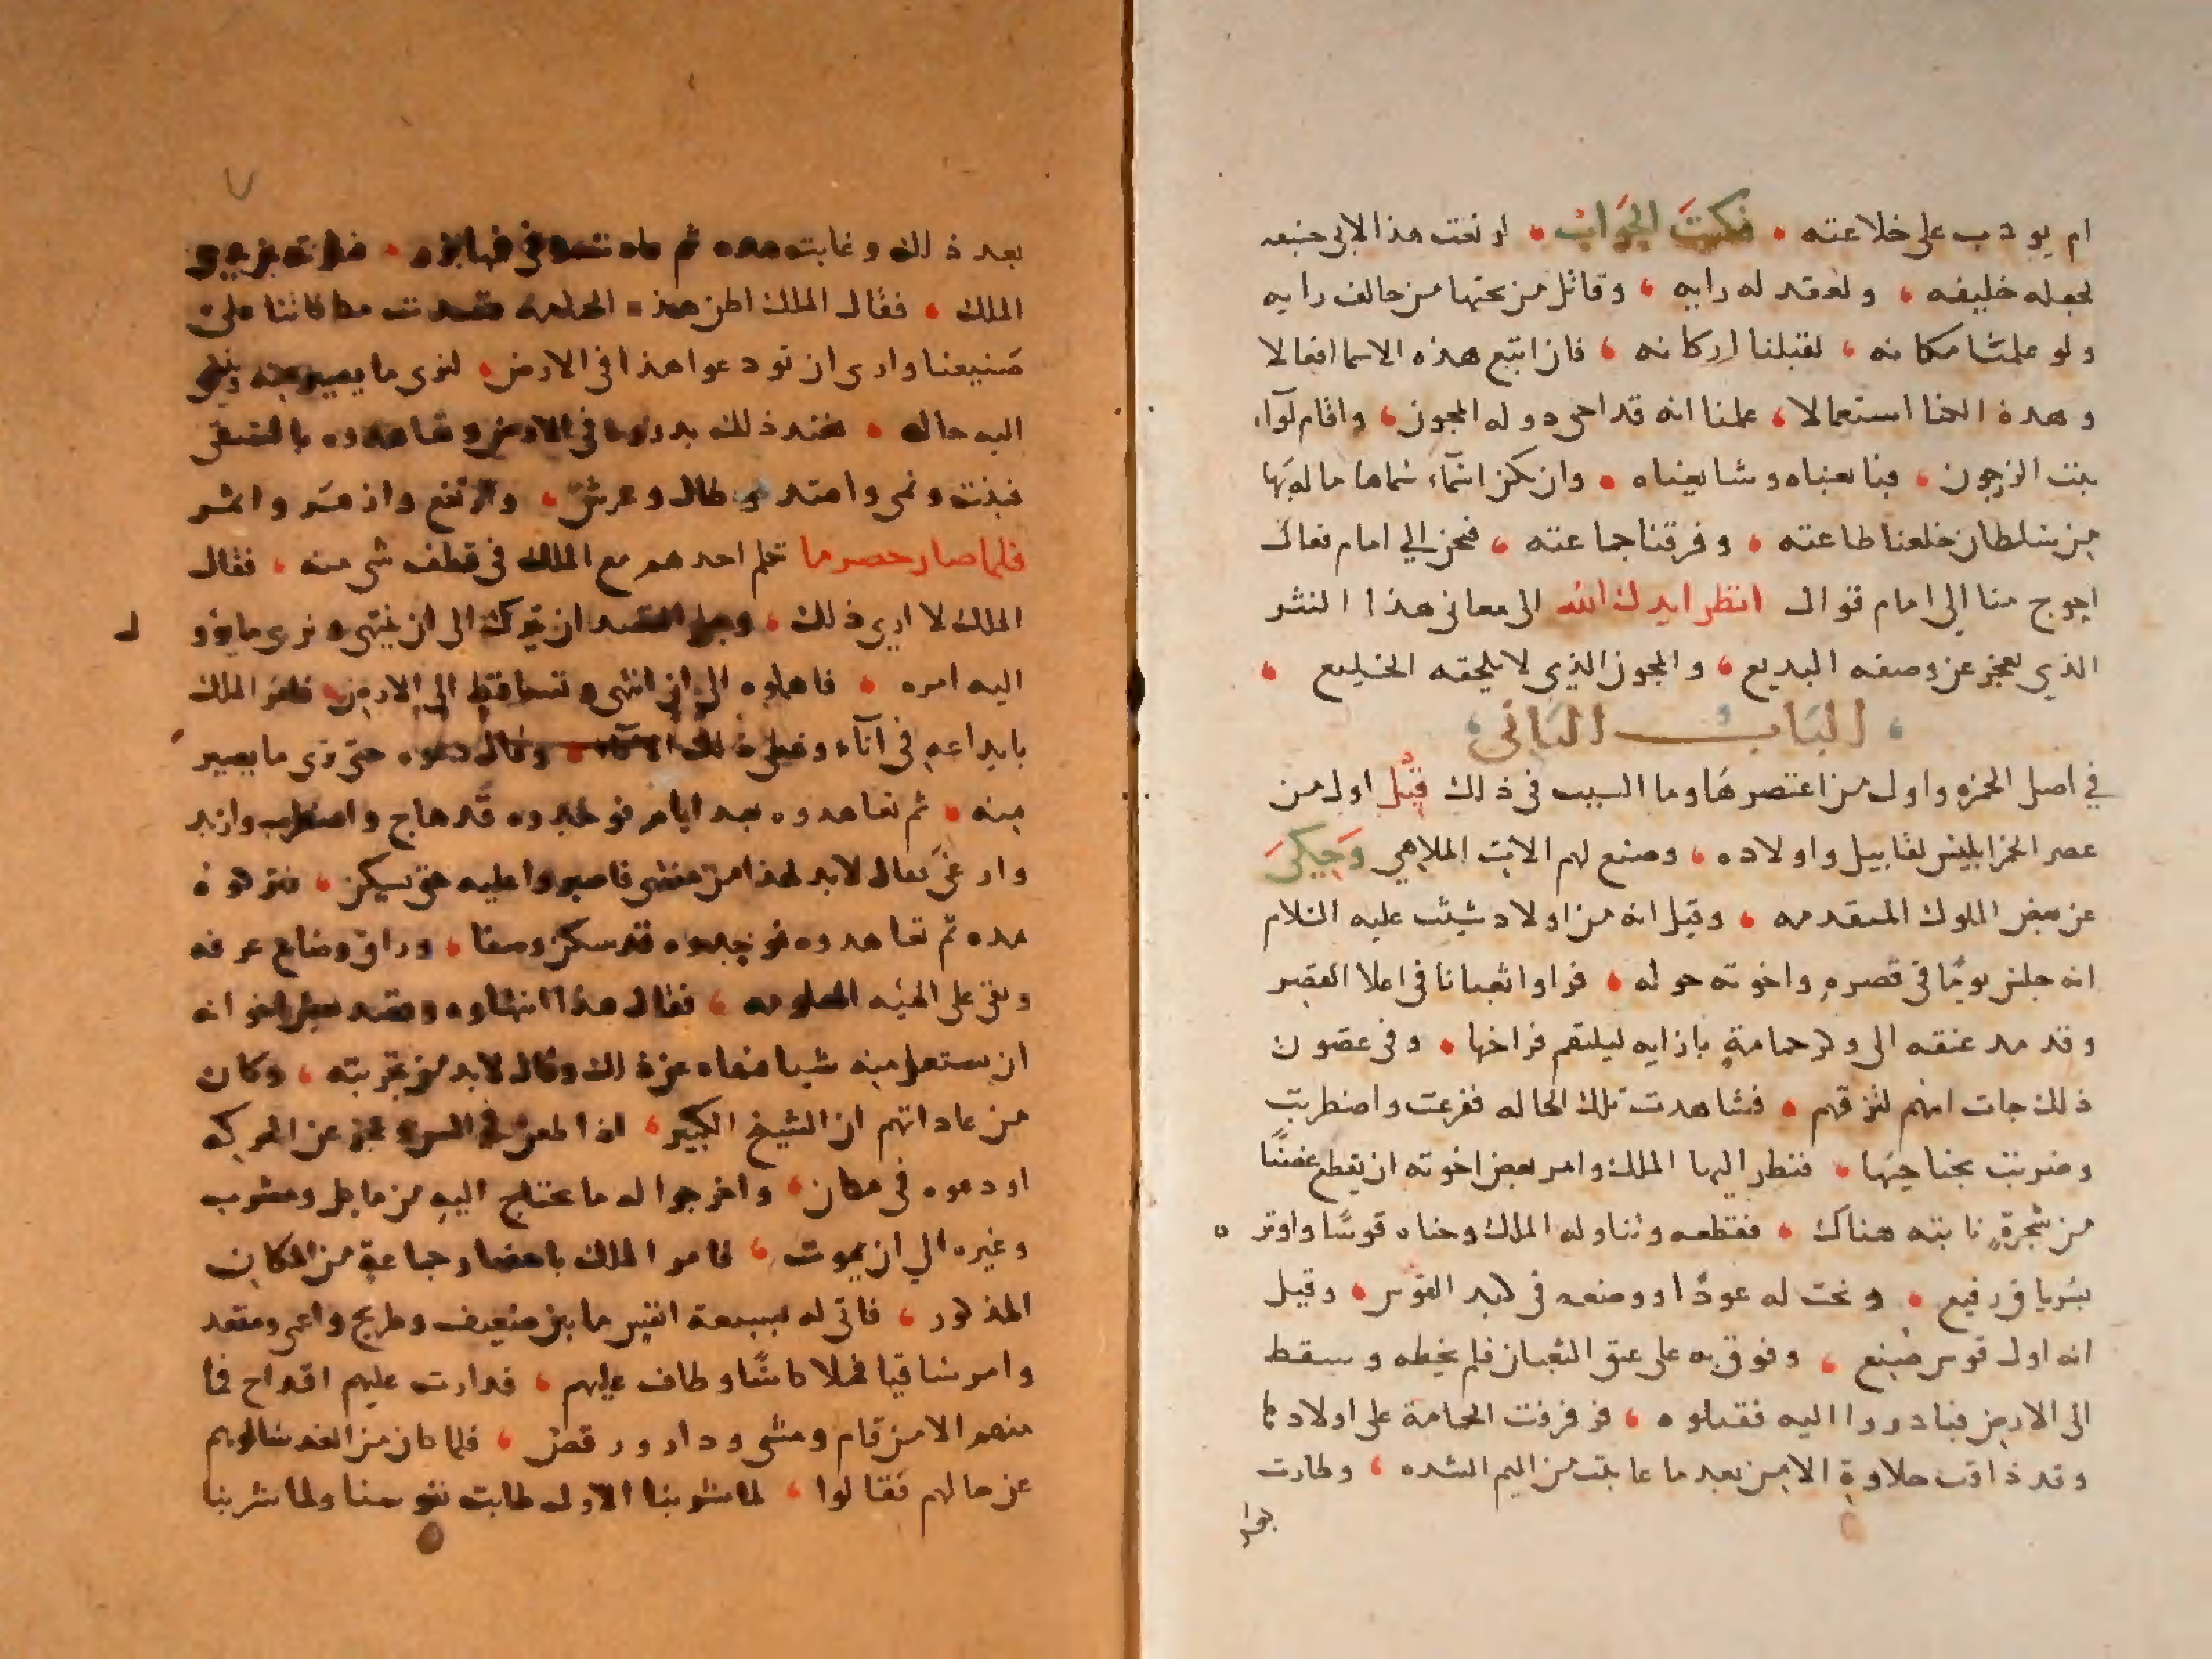 ام يودب على خلاعته فكتبَ الجَوابْ لو نعت هذا لابي حنيفه
لجعله خليفه ولعقد له رايه وقاتل من تحتها من خالف رايه
ولو علمنا مكانه لقبلنا اركانه فان اتبع هذه الاسما افعالا
وهذه الخنا استعمالا علمنا انه قد احى دوله المجون واقام لوآء
بنت الزرجون فبايعناه وشايعناه وان يكن اسمآء سماها ما لها بها
من سلطان خلعنا طاعته وفرقنا جماعته فنحن الي امام فعال
احوج منا الي امام قوال انظر ايدك الله الى معاني هذا النثر
الذي يعجز عن وصفه البديع والمجون الذي لا يلحقه الخليع
البَاب الثاني
في اصل الخمره واول من اعتصرها وما السبب في ذلك قيل اول من
عصر الخمر ابليس لقابيل واولاده وصنع لهم الات الملاهي وَحُكىَ
عن بعض الملوك المتقدمه وقيل انه من اولاد شيث عليه السلام
انه جلس يومًا في قصره واخوته حوله فراوا ثعبانا في اعلا القصر
وقد مد عنقه الى وكر حمامةٍ بازايه ليلتقم فراخها وفى غضون
ذلك جات امهم لتزقهم فشاهدت تلك الحاله ففزعت واضطربت
وضربت بجناحيها فنظر اليها الملك وامر بعض اخوته ان يقطع غصنًا
من شجرةٍ نابته هناك فقطعه وناوله الملك وحناه قوسًا واوتره
بشرياق رفيع ونحت له عودًا ووضعه في كبد القوس وقيل
انه اول قوس صُنع وفوق به على عنق الثعبان فلم يخطه وسقط
الى الارض فبادروا اليه فقتلوه فرفرفت الحمامة على اولادها
وقد ذاقت حلاوة الامن بعد ما عاينت من اليم الشده وطارت
بعد ذلك وغابت مده ثم عادت وفي فمها بزر
الملك فقال الملك اظن هذه الحمامه قصدت مكافاتنا على
صنيعنا وارى ان تودعوا هذا في الارض لنرى ما يصير منه
اليه حاله فعند ذلك بدروها في الارض وتعاهدوه بالسقى
فنبتت ونمى وامتد وطال وعرش وارتفع وازهر واثمر
فلما صار حصرما تكلم احدهم مع الملك في قطف شي منه فقال
الملك لا اري ذلك القصد ان يترك الى ان ينتهى ونرى ما يؤول
اليه امره فامهلوه الى ان انتهى وتساقط الى الارض فامر الملك
بايداعه في آنآء وغطى ذلك الانآء وقال دعوه حتى نرى ما يصير
منه ثم تعاهدوه بعد ايام فوجدوه قد هاج واضطرب وازبد
وارغى فقال لابد لهذا من منتهى فاصبروا عليه حتى يسكن فتركوه
مده ثم تعاهدوه فوجدوه قد سكن وصفا وراق وضاع عرفه
وبقى على الهيئه المعلومه فقال هذا انتهاوه وقصد بعض اخوانه
ان يستعمل منه شيا فنهاه عن ذلك وقال لابد من تجربته وكان
من عاداتهم ان الشيخ الكبير اذا طعن في السن وعجز عن الحركه
اودعوه في مكان واخرجوا له ما يحتاج اليه من ماكل ومشرب
وغيره الي ان يموت فامر الملك باحضار جماعةٍ من المكان
المذكور فاتى له بسبعة انفس ما بين ضعيف وطريح واعمى ومقعد
وامر ساقيا فملا كاسًا وطاف عليهم فدارت عليهم اقداح فما
منهم الا من قام ومشى ودار ورقص فلما كان من الغد سالوهم
عن حالهم فقالوا لما شربنا الاول طابت نفوسنا ولما شربنا